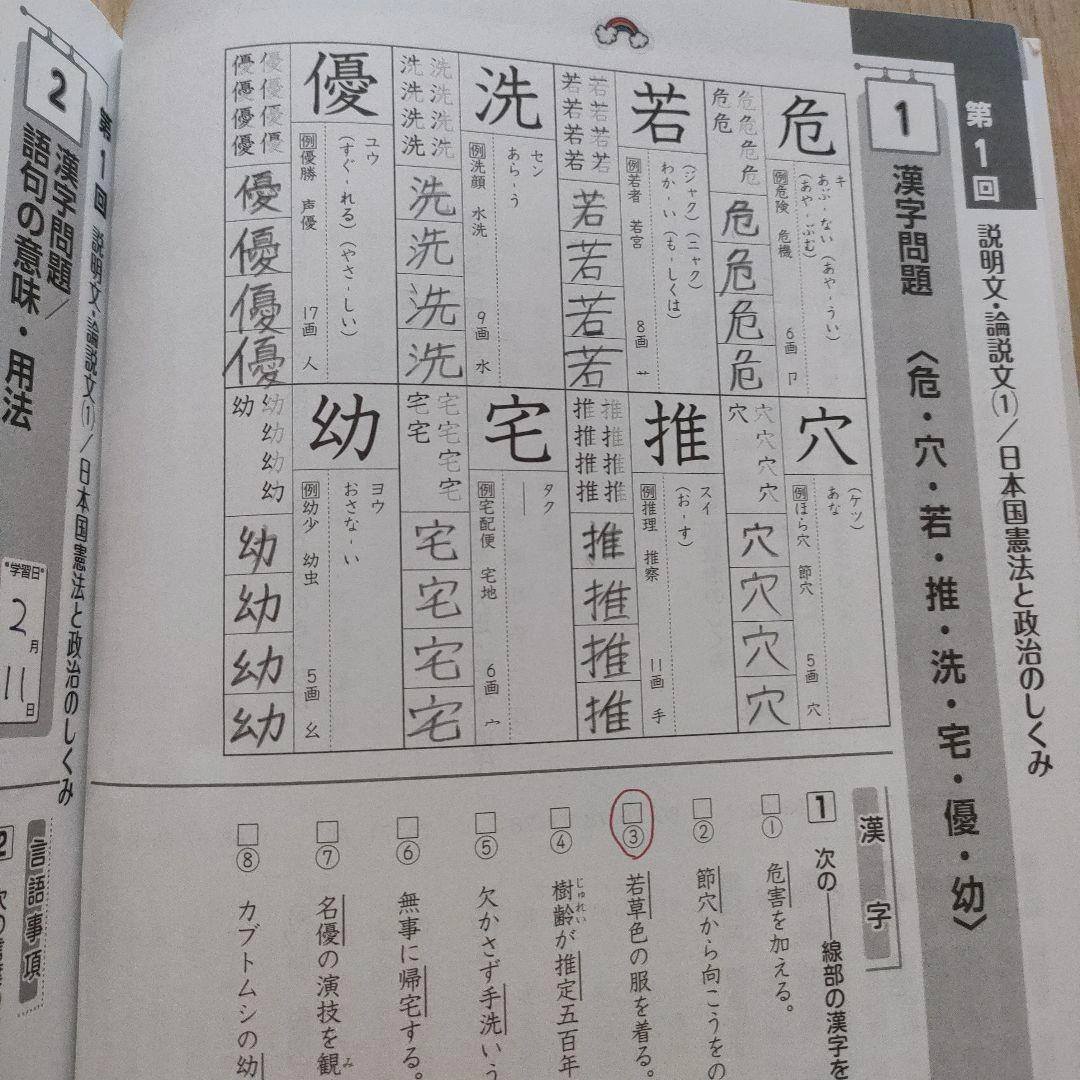 第1回 説明文・論説文(1)/日本国憲法と政治のしくみ
1 漢字問題 〈危・穴・若・推・洗・宅・優・幼〉
危
キ
あぶ-ない(あや-うい)
(あや-ぶむ)
例危険 危機 6画 卩
危危危危危危
危危危危
若
(ジャク)(ニャク)
わか-い(も-しくは)
例若者 若宮 8画 艹
若若若若若若若若
若若若若
洗
セン
あら-う
例洗顔 水洗 9画 水
洗洗洗洗洗洗洗洗
洗洗洗洗
優
ユウ
(すぐ-れる)(やさ-しい)
例優勝 声優 17画 人
優優優優優優優優
優優優優
穴
(ケツ)
あな
例ほら穴 節穴 5画 穴
穴穴穴穴穴
穴穴穴穴
推
スイ
(お-す)
例推理 推察 11画 手
推推推推推推推推
推推推推
宅
タク
例宅配便 宅地 6画 宀
宅宅宅宅宅宅
宅宅宅宅
幼
ヨウ
おさな-い
例幼少 幼虫 5画 幺
幼幼幼幼幼
幼幼幼幼
漢字
1 次の――線部の漢字を
□① 危害を加える。
□② 節穴から向こうをの
□③ 若草色の服を着る。
□④ 樹齢じゅれいが推定五百年
□⑤ 欠かさず手洗いう
□⑥ 無事に帰宅する。
□⑦ 名優の演技を観み
□⑧ カブトムシの幼
第1回 説明文・論説文(1)/日本国憲法と政治のしくみ
2 漢字問題/
語句の意味・用法
学習日
2月
11日
言語事項
2